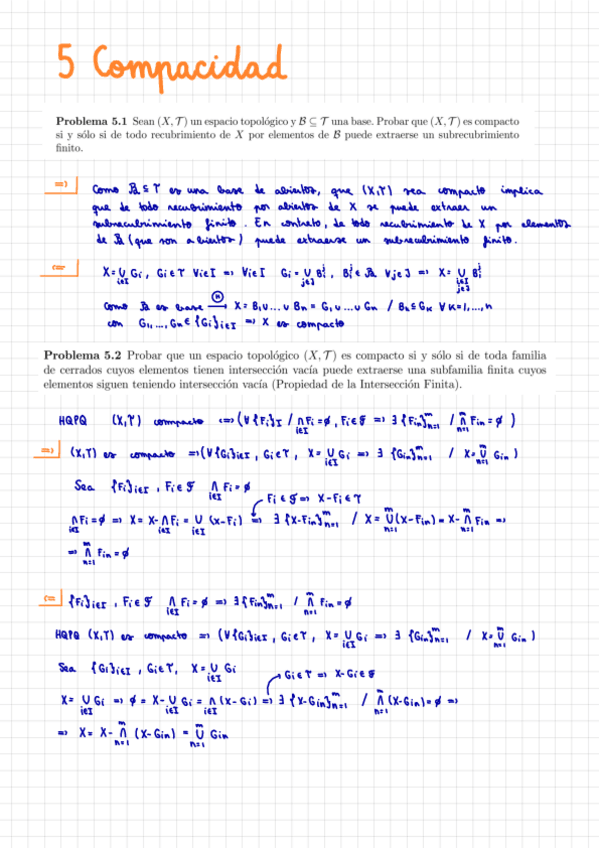 5 Compacidad
Problema 5.1 Sean (X, T) un espacio topológico y B ⊆ T una base. Probar que (X, T) es compacto
si y sólo si de todo recubrimiento de X por elementos de B puede extraerse un subrecubrimiento
finito.
⇒) Como B ⊆ T es una base de abiertos, que (X,T) sea compacto implica
que de todo recubrimiento por abiertos de X se puede extraer un
subrecubrimiento finito. En concreto, de todo recubrimiento de X por elementos
de B (que son abiertos) puede extraerse un subrecubrimiento finito.
⇐ X = ∪_{i∈I} Gi, Gi ∈ T ∀i∈I ⇒ ∀i∈I Gi = ∪_{j∈J} B_i^j, B_i^j ∈ B ∀j∈J ⇒ X = ∪_{i∈I, j∈J} B_i^j
Como B es base → X = B1 ∪ ... ∪ Bn = G1 ∪ ... ∪ Gn / Bk ⊆ Gk ∀ k=1,...,n
con G1,...,Gn ∈ {Gi}i∈I ⇒ X es compacto
Problema 5.2 Probar que un espacio topológico (X, T) es compacto si y sólo si de toda familia
de cerrados cuyos elementos tienen intersección vacía puede extraerse una subfamilia finita cuyos
elementos siguen teniendo intersección vacía (Propiedad de la Intersección Finita).
HQPQ (X,T) compacto ⇔ (∀{Fi}I / ∩_{i∈I} Fi = ∅, Fi ∈ F ⇒ ∃ {Fin}_{n=1}^m / ∩_{n=1}^m Fin = ∅)
⇒) (X,T) es compacto ⇒ (∀{Gi}i∈I, Gi∈T, X = ∪_{i∈I} Gi ⇒ ∃ {Gin}_{n=1}^m / X = ∪_{n=1}^m Gin)
Sea {Fi}i∈I, Fi∈F ∩_{i∈I} Fi = ∅
Fi ∈ F ⇒ X-Fi ∈ T
∩_{i∈I} Fi = ∅ ⇒ X = X - ∩_{i∈I} Fi = ∪_{i∈I} (X-Fi) ⇒ ∃ {X-Fin}_{n=1}^m / X = ∪_{n=1}^m (X-Fin) = X - ∩_{n=1}^m Fin ⇒
⇒ ∩_{n=1}^m Fin = ∅
⇐ {Fi}i∈I, Fi∈F ∩_{i∈I} Fi = ∅ ⇒ ∃ {Fin}_{n=1}^m / ∩_{n=1}^m Fin = ∅
HQPQ (X,T) es compacto ⇒ (∀{Gi}i∈I, Gi∈T, X = ∪_{i∈I} Gi ⇒ ∃ {Gin}_{n=1}^m / X = ∪_{n=1}^m Gin)
Sea {Gi}i∈I, Gi∈T, X = ∪_{i∈I} Gi
Gi∈T ⇒ X-Gi∈F
X = ∪_{i∈I} Gi ⇒ ∅ = X - ∪_{i∈I} Gi = ∩_{i∈I} (X-Gi) ⇒ ∃ {X-Gin}_{n=1}^m / ∩_{n=1}^m (X-Gin) = ∅ ⇒
⇒ X = X - ∩_{n=1}^m (X-Gin) = ∪_{n=1}^m Gin